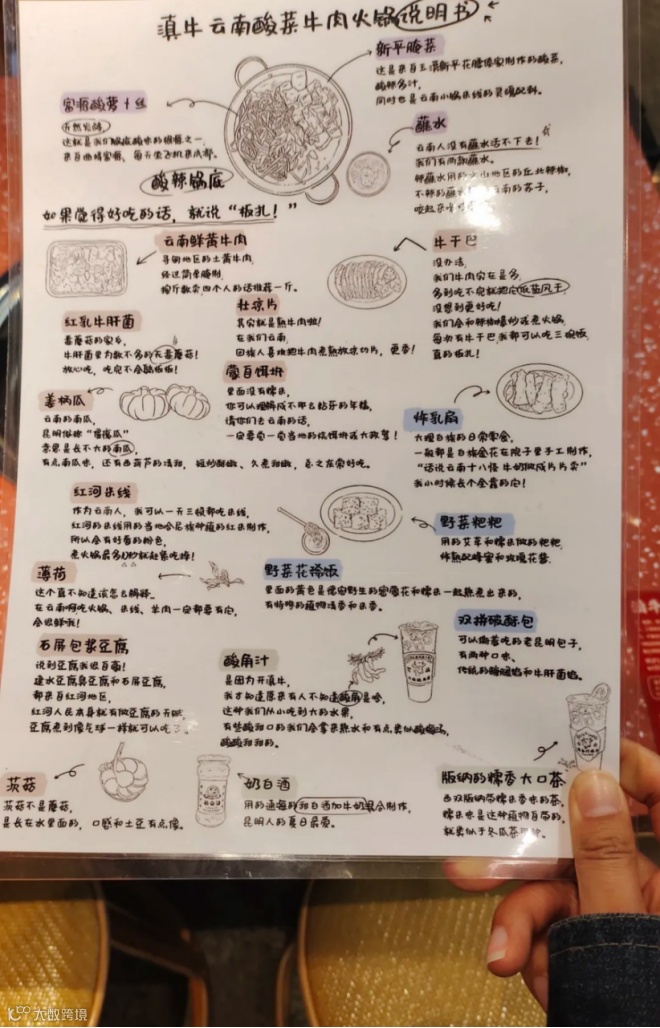 滇牛云南酸菜牛肉火锅说明书
新平腌菜
这是来自玉溪新平花腰傣家制作的酸菜,
酸辣多汁,
同时也是云南小锅米线的灵魂配料。
富源酸萝卜丝
天然发酵
这就是我们锅底酸味的根源之一
来自曲靖富源, 每天坐飞机来成都。
蘸水
云南人没有蘸水活不下去!
我们有两款蘸水。
辣蘸水用的文山地区的丘北辣椒,
不辣的蘸水
云南的苏子,
酸辣锅底
如果觉得好吃的话, 就说“板扎!”
云南鲜黄牛肉
寻甸地区的土黄牛肉,
经过简单腌制,
按斤数卖四个人的话推荐一斤。
牛干巴
没办法,
我们牛肉实在是多,
多到吃不完就把它做成风干
没想到更好吃!
我们会和辣椒爆炒或煮火锅,
每次有牛干巴我都可以吃三碗饭,
真的板扎!
红乳牛肝菌
毒蘑菇的家乡,
牛肝菌里为数不多的无毒蘑菇!
放心吃, 吃完不会躺板板!
牡凉片
其实就是熟牛肉啦!
在我们云南
回族人喜欢把牛肉煮熟放凉切片, 更香!
蒙自饵块
里面没有糯米,
你可以理解成不那么粘牙的年糕,
请你们去云南的话,
一定要尝一尝当地的烧饵块或大救驾!
姜柄瓜
云南的南瓜,
昆明俗称“
亲眼是长不大的南瓜,
有点南瓜味, 还有西葫芦的清甜, 短炒甜嫩、久煮甜嫩, 总之非常好吃。
炸乳扇
大理白族的日常零食,
一般都是白族金花在院子里手工制作,
“话说云南十八怪 牛奶做成片片卖”
我小时候长个全靠的它!
红河米线
作为云南人, 我可以一天三顿都吃米线,
红河的米线用的当地哈尼族种植的红米制作,
所以会有好看的粉色,
煮火锅最多1秒就赶紧吃掉!
野菜粑粑
用的艾草和糯米做的粑粑,
炸熟配蜂蜜和玫瑰花酱.
薄荷
这个真不知道该怎么解释..
在云南啊吃火锅、米线、羊肉一定都要有它,
会很鲜哦!
野菜花稀饭
里面的黄色是傣家野生的密蒙花和糯米一起熬煮出来的,
有特殊的植物清香和米香。
石屏包浆豆腐
说到豆腐我很自豪!
建水豆腐臭豆腐和石屏豆腐,
都来自红河地区,
红河人民本身就有做豆腐的天赋
豆腐煮到像气球一样就可以吃了。
双拼破酥包
可以偷着吃的老昆明包子,
有两种口味,
传统的酸腌馅和牛肝菌馅。
酸角汁
是因为开滇牛,
我才知道原来有人不知道酸角是啥,
这种我们从小吃到大的水果,
有些酸甜口的我们会拿来熬水和有点类似酸梅汤,
酸酸甜甜的。
茨菇
茨菇不是蘑菇,
是长在水里面的, 口感和土豆有点像。
奶白酒
用的通海的和白酒加牛奶混合制作,
昆明人的夏日最爱。
版纳的糯香大口茶
西双版纳带糯米香味的茶,
糯米味是这种植物自带的,
就类似于冬瓜茶
大数跨境